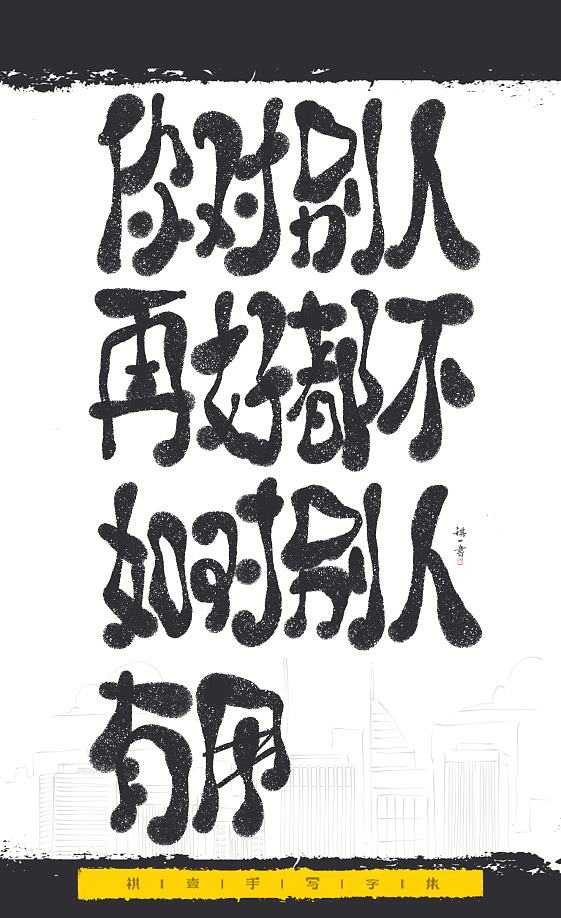 你对别人
再好都不
如对别人
有用
祺一书
祺|壹|手|写|字|集